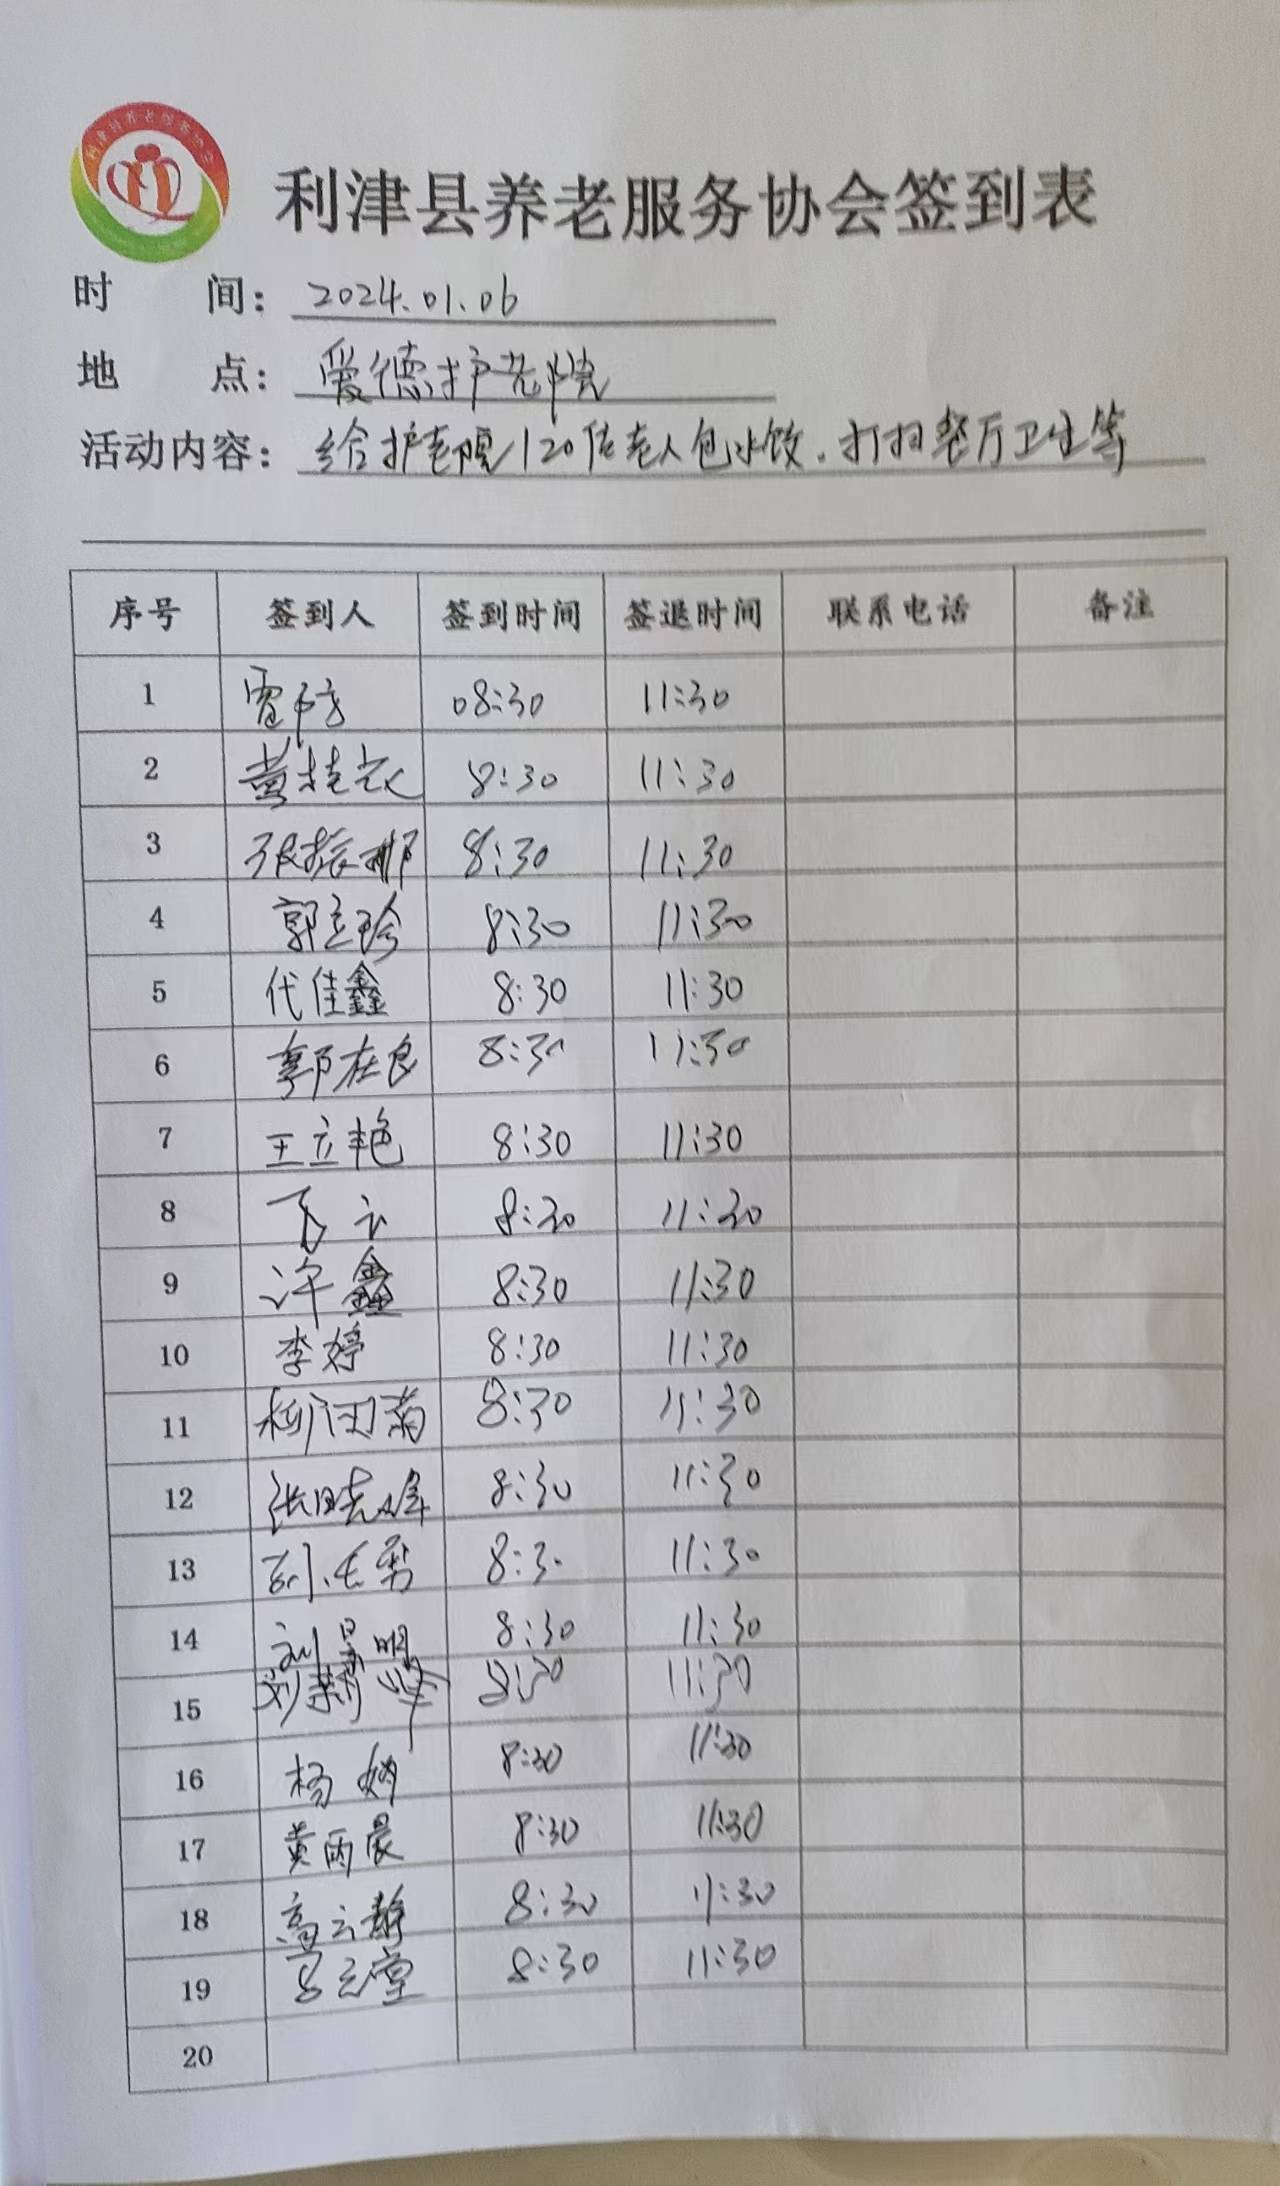 利津县养老服务协会
利津县养老服务协会签到表
时 间: 2024.01.06
地 点: 爱德护老院
活动内容: 给护老院120位老人包水饺.打扫餐厅卫生等
序号 签到人 签到时间 签退时间 联系电话 备注
1 08:30 11:30
2 黄桂 8:30 11:30
3 张振 8:30 11:30
4 郭立珍 8:30 11:30
5 代佳鑫 8:30 11:30
6 郭在良 8:30 11:30
7 王立艳 8:30 11:30
8 飞云 8:30 11:30
9 许鑫 8:30 11:30
10 李婷 8:30 11:30
11 柳闰菊 8:30 11:30
12 张晓峰 8:30 11:30
13 8:30 11:30
14 刘景明 8:30 11:30
15 刘 8:30 11:30
16 杨娟 8:30 11:30
17 黄丙晨 8:30 11:30
18 高云静 8:30 11:30
19 吕元堂 8:30 11:30
20